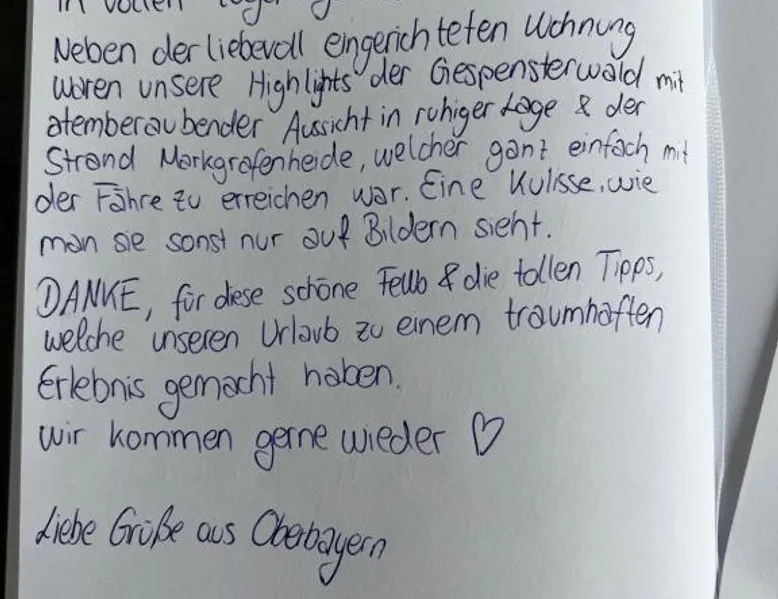 in vollen
Neben der liebevoll eingerichteten Wohnung
waren unsere Highlights der Gespensterwald mit
atemberaubender Aussicht in ruhiger Lage & der
Strand Markgrafenheide, welcher ganz einfach mit
der Fähre zu erreichen war. Eine Kulisse, wie
man sie sonst nur auf Bildern sieht.
DANKE, für diese schöne FeWo & die tollen Tipps,
welche unseren Urlaub zu einem traumhaften
Erlebnis gemacht haben.
Wir kommen gerne wieder ♡
Liebe Grüße aus Oberbayern